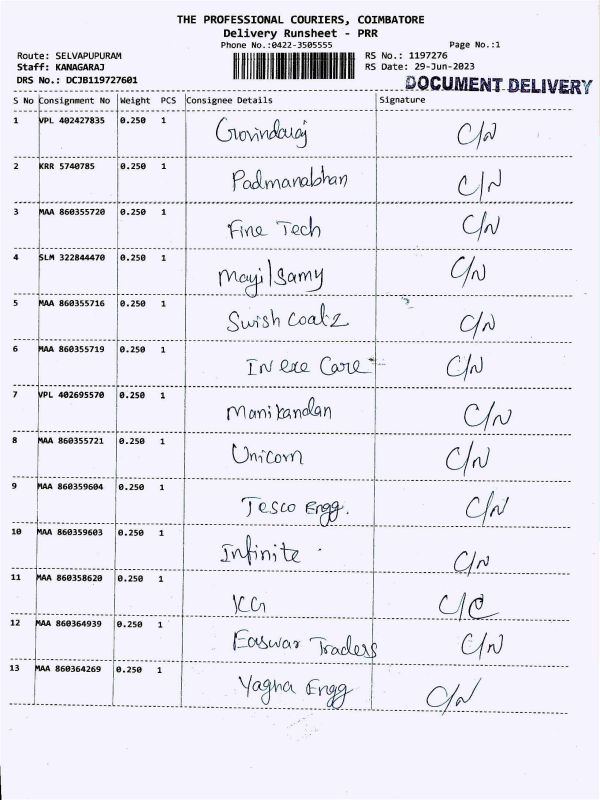 THE PROFESSIONAL COURIERS, COIMBATORE
Delivery Runsheet - PRR
Phone No.:0422-3505555 Page No.:1
Route: SELVAPUPURAM RS No.: 1197276
Staff: KANAGARAJ RS Date: 29-Jun-2023
DRS No.: DCJB119727601 DOCUMENT DELIVERY
S No Consignment No Weight PCS Consignee Details Signature
1 VPL 402427835 0.250 1 Govindaraj C/N
2 KRR 5740785 0.250 1 Padmanabhan C/N
3 MAA 860355720 0.250 1 Fine Tech C/N
4 SLM 322844470 0.250 1 Mayilsamy C/N
5 MAA 860355716 0.250 1 Swish Coatz C/N
6 MAA 860355719 0.250 1 In exe Care C/N
7 VPL 402695570 0.250 1 Manikandan C/N
8 MAA 860355721 0.250 1 Unicorn C/N
9 MAA 860359604 0.250 1 Tesco Engg. C/N
10 MAA 860359603 0.250 1 Infinite C/N
11 MAA 860358620 0.250 1 KG C/C
12 MAA 860364939 0.250 1 Easwar Traders C/N
13 MAA 860364269 0.250 1 Yagna Engg C/N